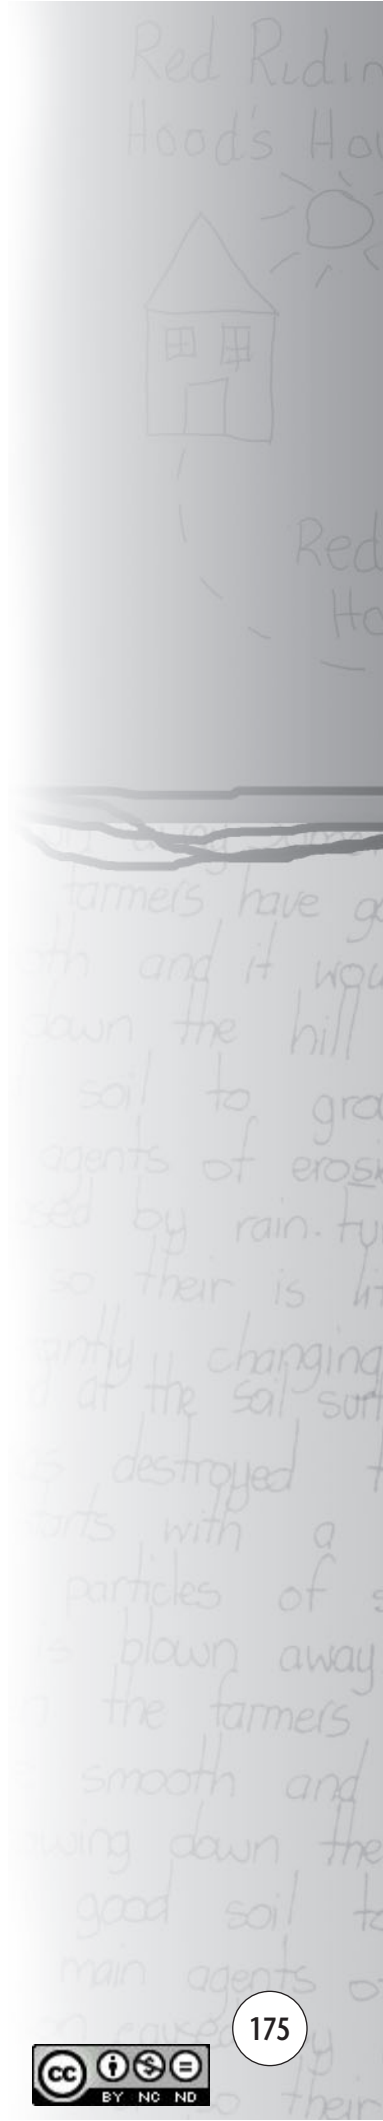 Red Ridin
Hood's Hou
Red
Ho
away some
farmers have go
and it wou
down the hill
soil to gro
agents of erosi
by rain. tu
so their is lit
antly changing
at the soil surf
destroyed t
arts with a
particles of s
is blown away
the farmers
smooth and
wing down the
good soil to
main agents o
caused by
175
so their
cc
BY NC ND